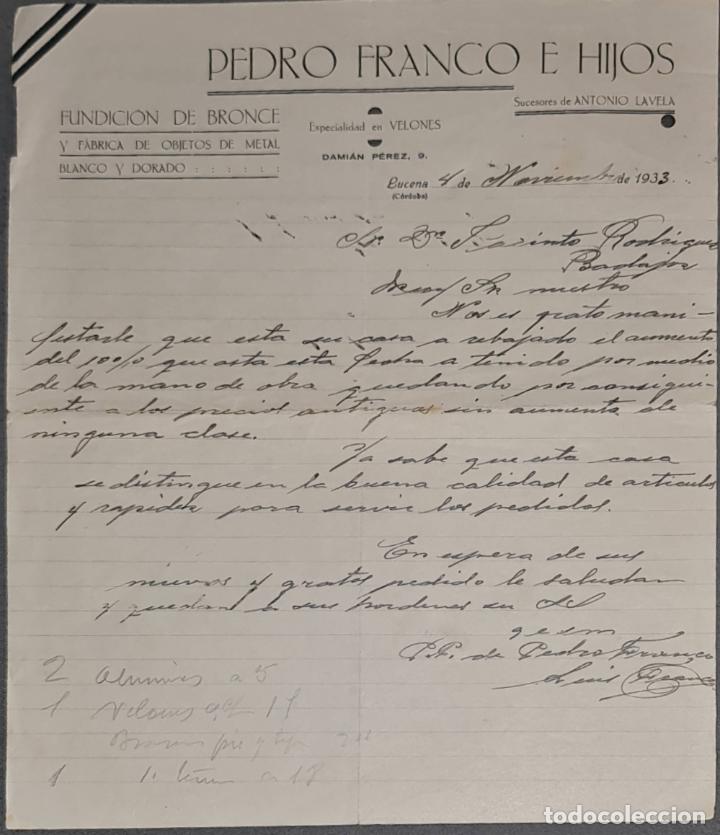 PEDRO FRANCO E HIJOS
Sucesores de ANTONIO LAVELA
FUNDICIÓN DE BRONCE
Y FÁBRICA DE OBJETOS DE METAL
BLANCO Y DORADO : : : : : :
Especialidad en VELONES
DAMIÁN PÉREZ, 9.
Lucena 4 de Noviembre de 1933.
(Córdoba)
Sr. Dn. Jacinto Rodriguez
Badajoz
Muy Sr nuestro
Nos es grato mani-
festarle que esta su casa a rebajado el aumento
del 10% que asta esta fecha a tenido por medio
de la mano de obra quedando por consigui-
ente a los precios antiguos sin aumento de
ninguna clase.
Ya sabe que esta casa
se distingue en la buena calidad de articulos
y rapidez para servir los pedidos.
En espera de sus
nuevos y gratos pedido le saludan
y quedan a sus hordenes su
q e s m
P.P. de Pedro Franco
Luis Franco
2 a 5
1 Velones
1 a 18
todocoleccion